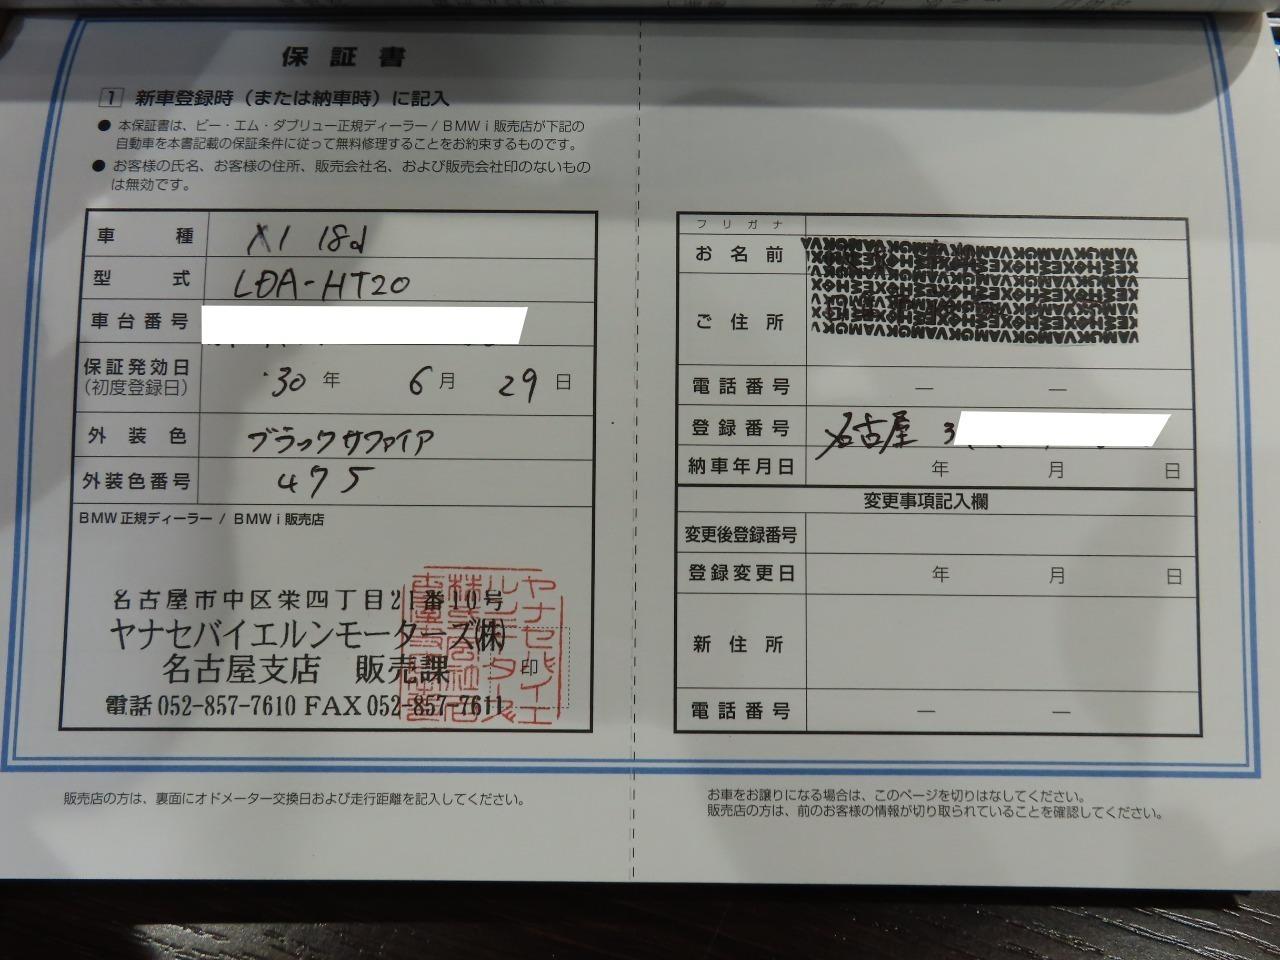 保証書
1 新車登録時（または納車時）に記入
● 本保証書は、ビー・エム・ダブリュー正規ディーラー / BMW i 販売店が下記の
自動車を本書記載の保証条件に従って無料修理することをお約束するものです。
● お客様の氏名、お客様の住所、販売会社名、および販売会社印のないもの
は無効です。
車種 X1 18d
型式 LDA-HT20
車台番号
保証発効日
(初度登録日) 30年 6月 29日
外装色 ブラックサファイア
外装色番号 475
BMW正規ディーラー / BMW i 販売店
名古屋市中区栄四丁目21番10号
ヤナセバイエルンモーターズ(株)
名古屋支店 販売課
印
電話 052-857-7610 FAX 052-857-7611
フリガナ
お名前
ご住所
電話番号 — —
登録番号 名古屋 3
納車年月日 年 月 日
変更事項記入欄
変更後登録番号
登録変更日 年 月 日
新住所
電話番号 — —
販売店の方は、裏面にオドメーター交換日および走行距離を記入してください。
お車をお譲りになる場合は、このページを切りはなしてください。
販売店の方は、前のお客様の情報が切り取られていることを確認してください。